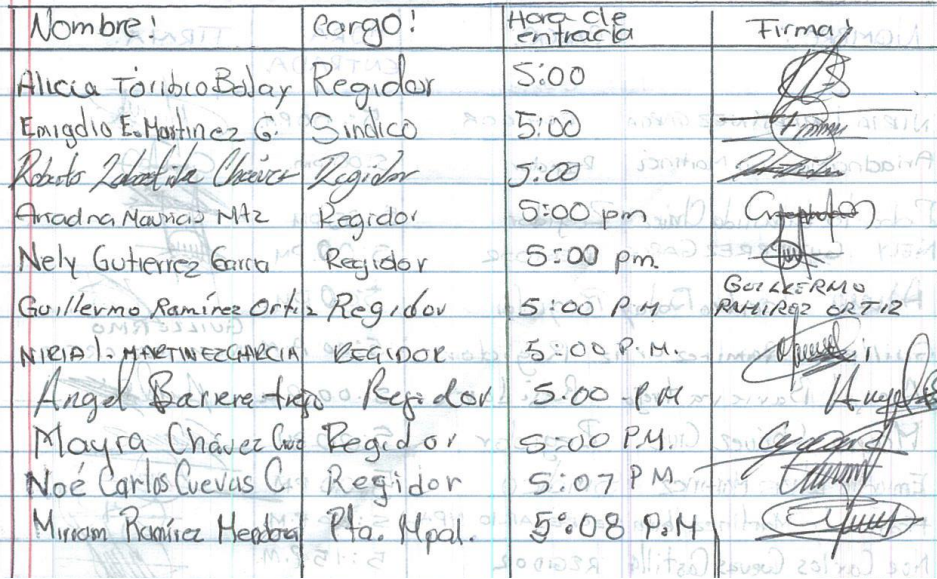 Nombre: Cargo: Hora de entrada Firma:
Alicia Toribio Bolay Regidor 5:00
Emigdio E. Martinez G. Sindico 5:00
Roberto Chávez Regidor 5:00
Ariadna Mauricio Mtz Regidor 5:00 pm
Nely Gutierrez Garcia Regidor 5:00 pm.
Guillermo Ramírez Ortiz Regidor 5:00 PM GUILLERMO RAMIREZ ORTIZ
NIRIA I. MARTINEZ GARCIA REGIDOR 5:00 P.M.
Angel Barrera trejo Regidor 5:00 PM
Mayra Chávez Cruz Regidor 5:00 P.M.
Noé Carlos Cuevas C. Regidor 5:07 P.M.
Miriam Ramírez Mendoza Pta. Mpal. 5:08 P.M